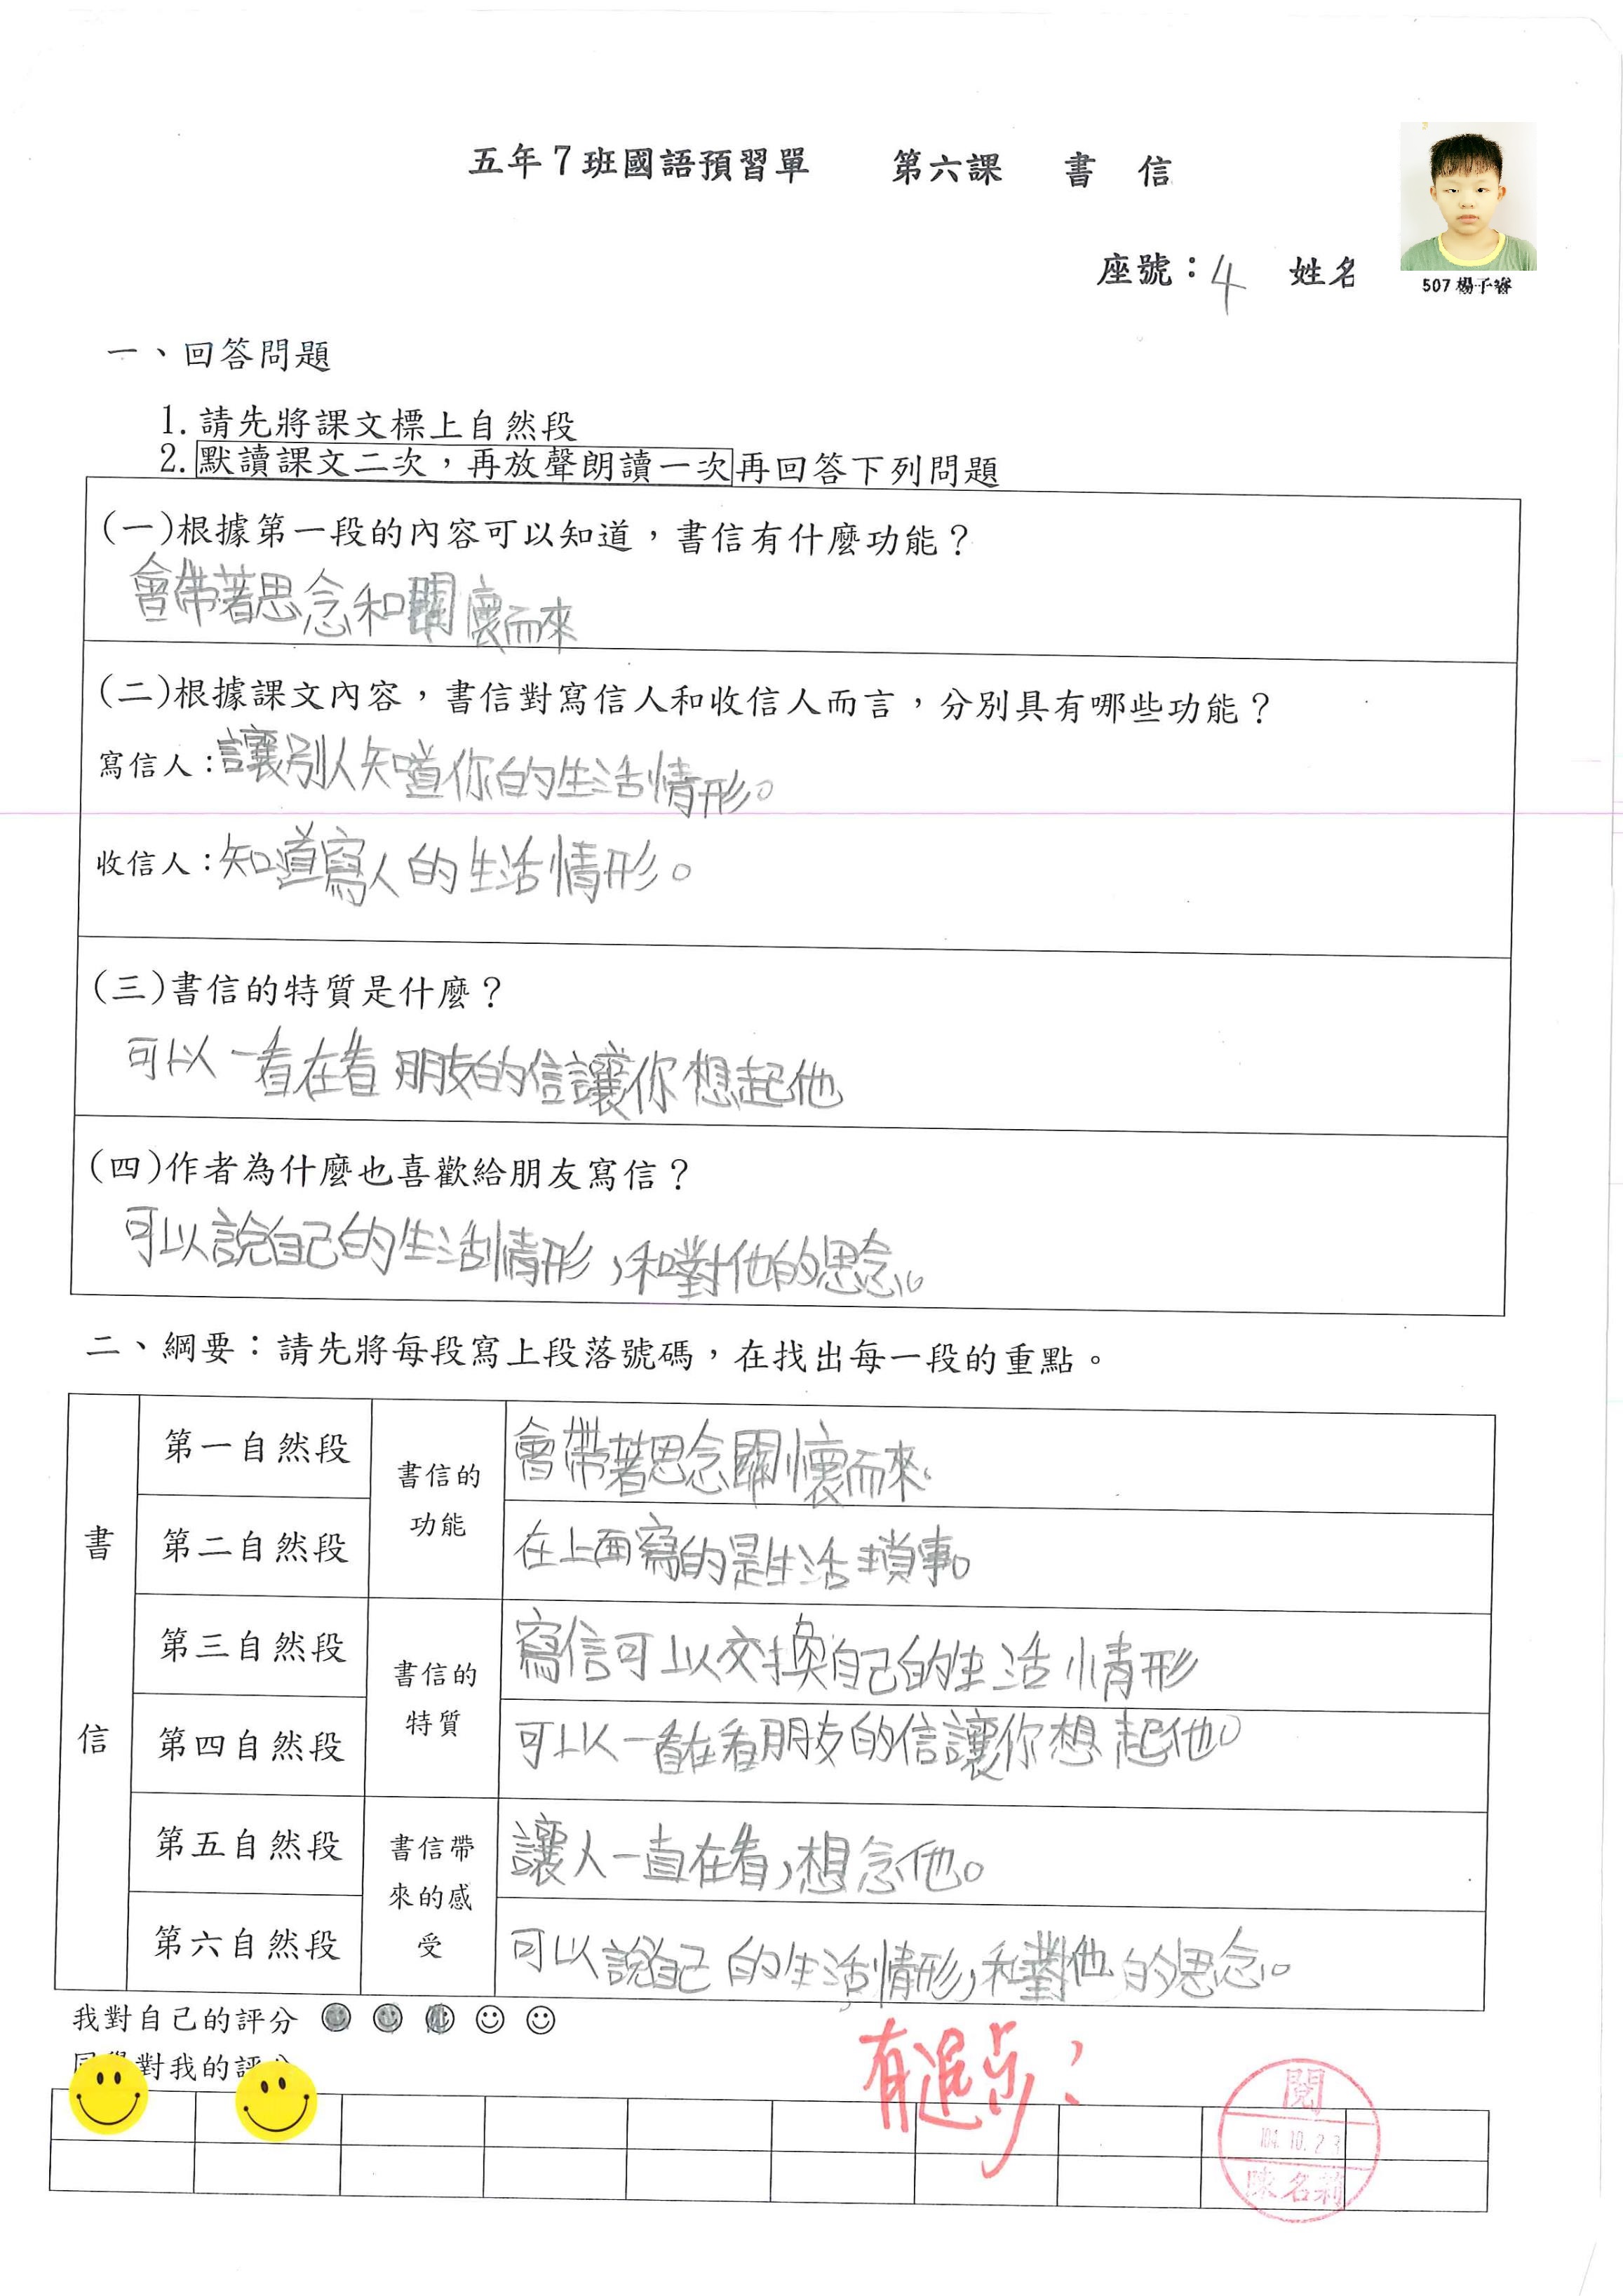 五年7班國語預習單 第六課 書 信
座號：4 姓名
507 楊子睿
一、回答問題
1.請先將課文標上自然段
2.默讀課文二次，再放聲朗讀一次再回答下列問題
(一)根據第一段的內容可以知道，書信有什麼功能？
會帶著思念和關懷而來
(二)根據課文內容，書信對寫信人和收信人而言，分別具有哪些功能？
寫信人：讓別人知道你的生活情形。
收信人：知道寫人的生活情形。
(三)書信的特質是什麼？
可以一看在看朋友的信讓你想起他
(四)作者為什麼也喜歡給朋友寫信？
可以說自己的生活情形，和對他的思念。
二、綱要：請先將每段寫上段落號碼，在找出每一段的重點。
書信
第一自然段 書信的功能 會帶著思念關懷而來。
第二自然段 在上面寫的是生活瑣事。
第三自然段 書信的特質 寫信可以交換自己的生活情形
第四自然段 可以一看在看朋友的信讓你想起他。
第五自然段 書信帶來的感受 讓人一直在看，想念他。
第六自然段 可以說自己的生活情形，和對他的思念。
我對自己的評分
對我的評
有進步！
閱
104.10.23
陳名莉